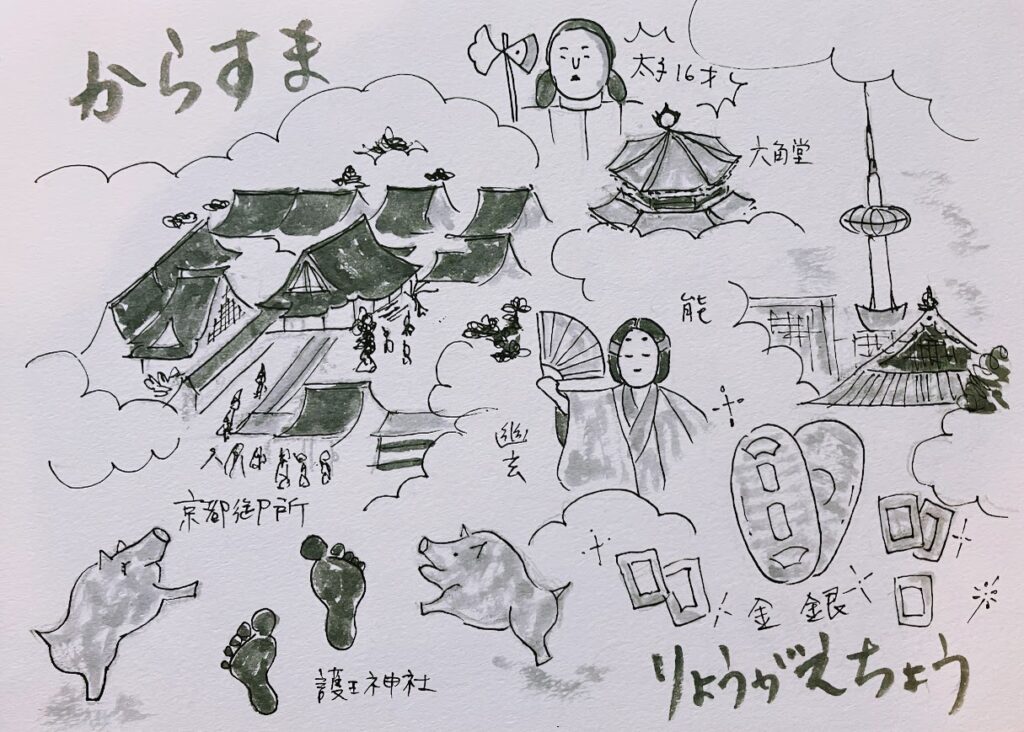 からすま
太子16才
六角堂
能
幽玄
京都御所
金 銀
護王神社
りょうがえちょう